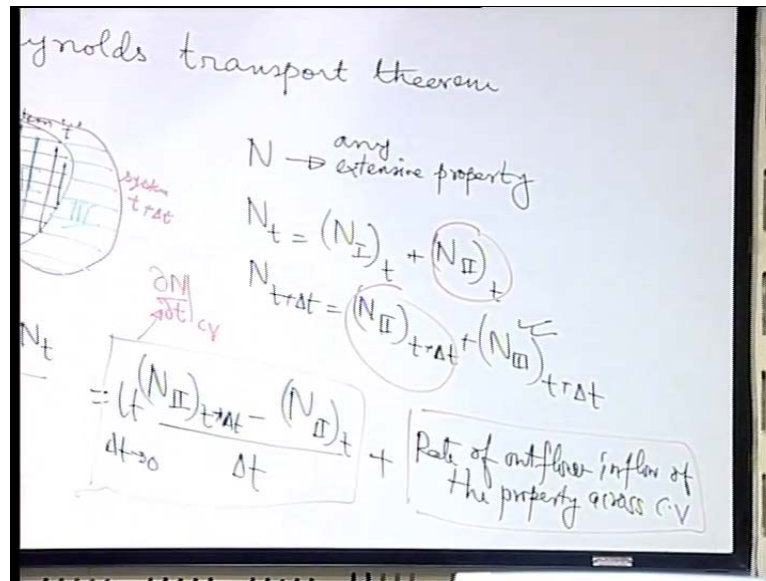 ynolds transport theorem
system 't'
system
t+Δt
III
N → any
extensive property
N_t = (N_I)_t + (N_II)_t
N_t+Δt = (N_II)_t+Δt + (N_III)_t+Δt
∂N/∂t|CV
N_t
= lt Δt→0 ((N_II)_t+Δt - (N_II)_t)/Δt + Rate of outflow-inflow of
the property across C.V